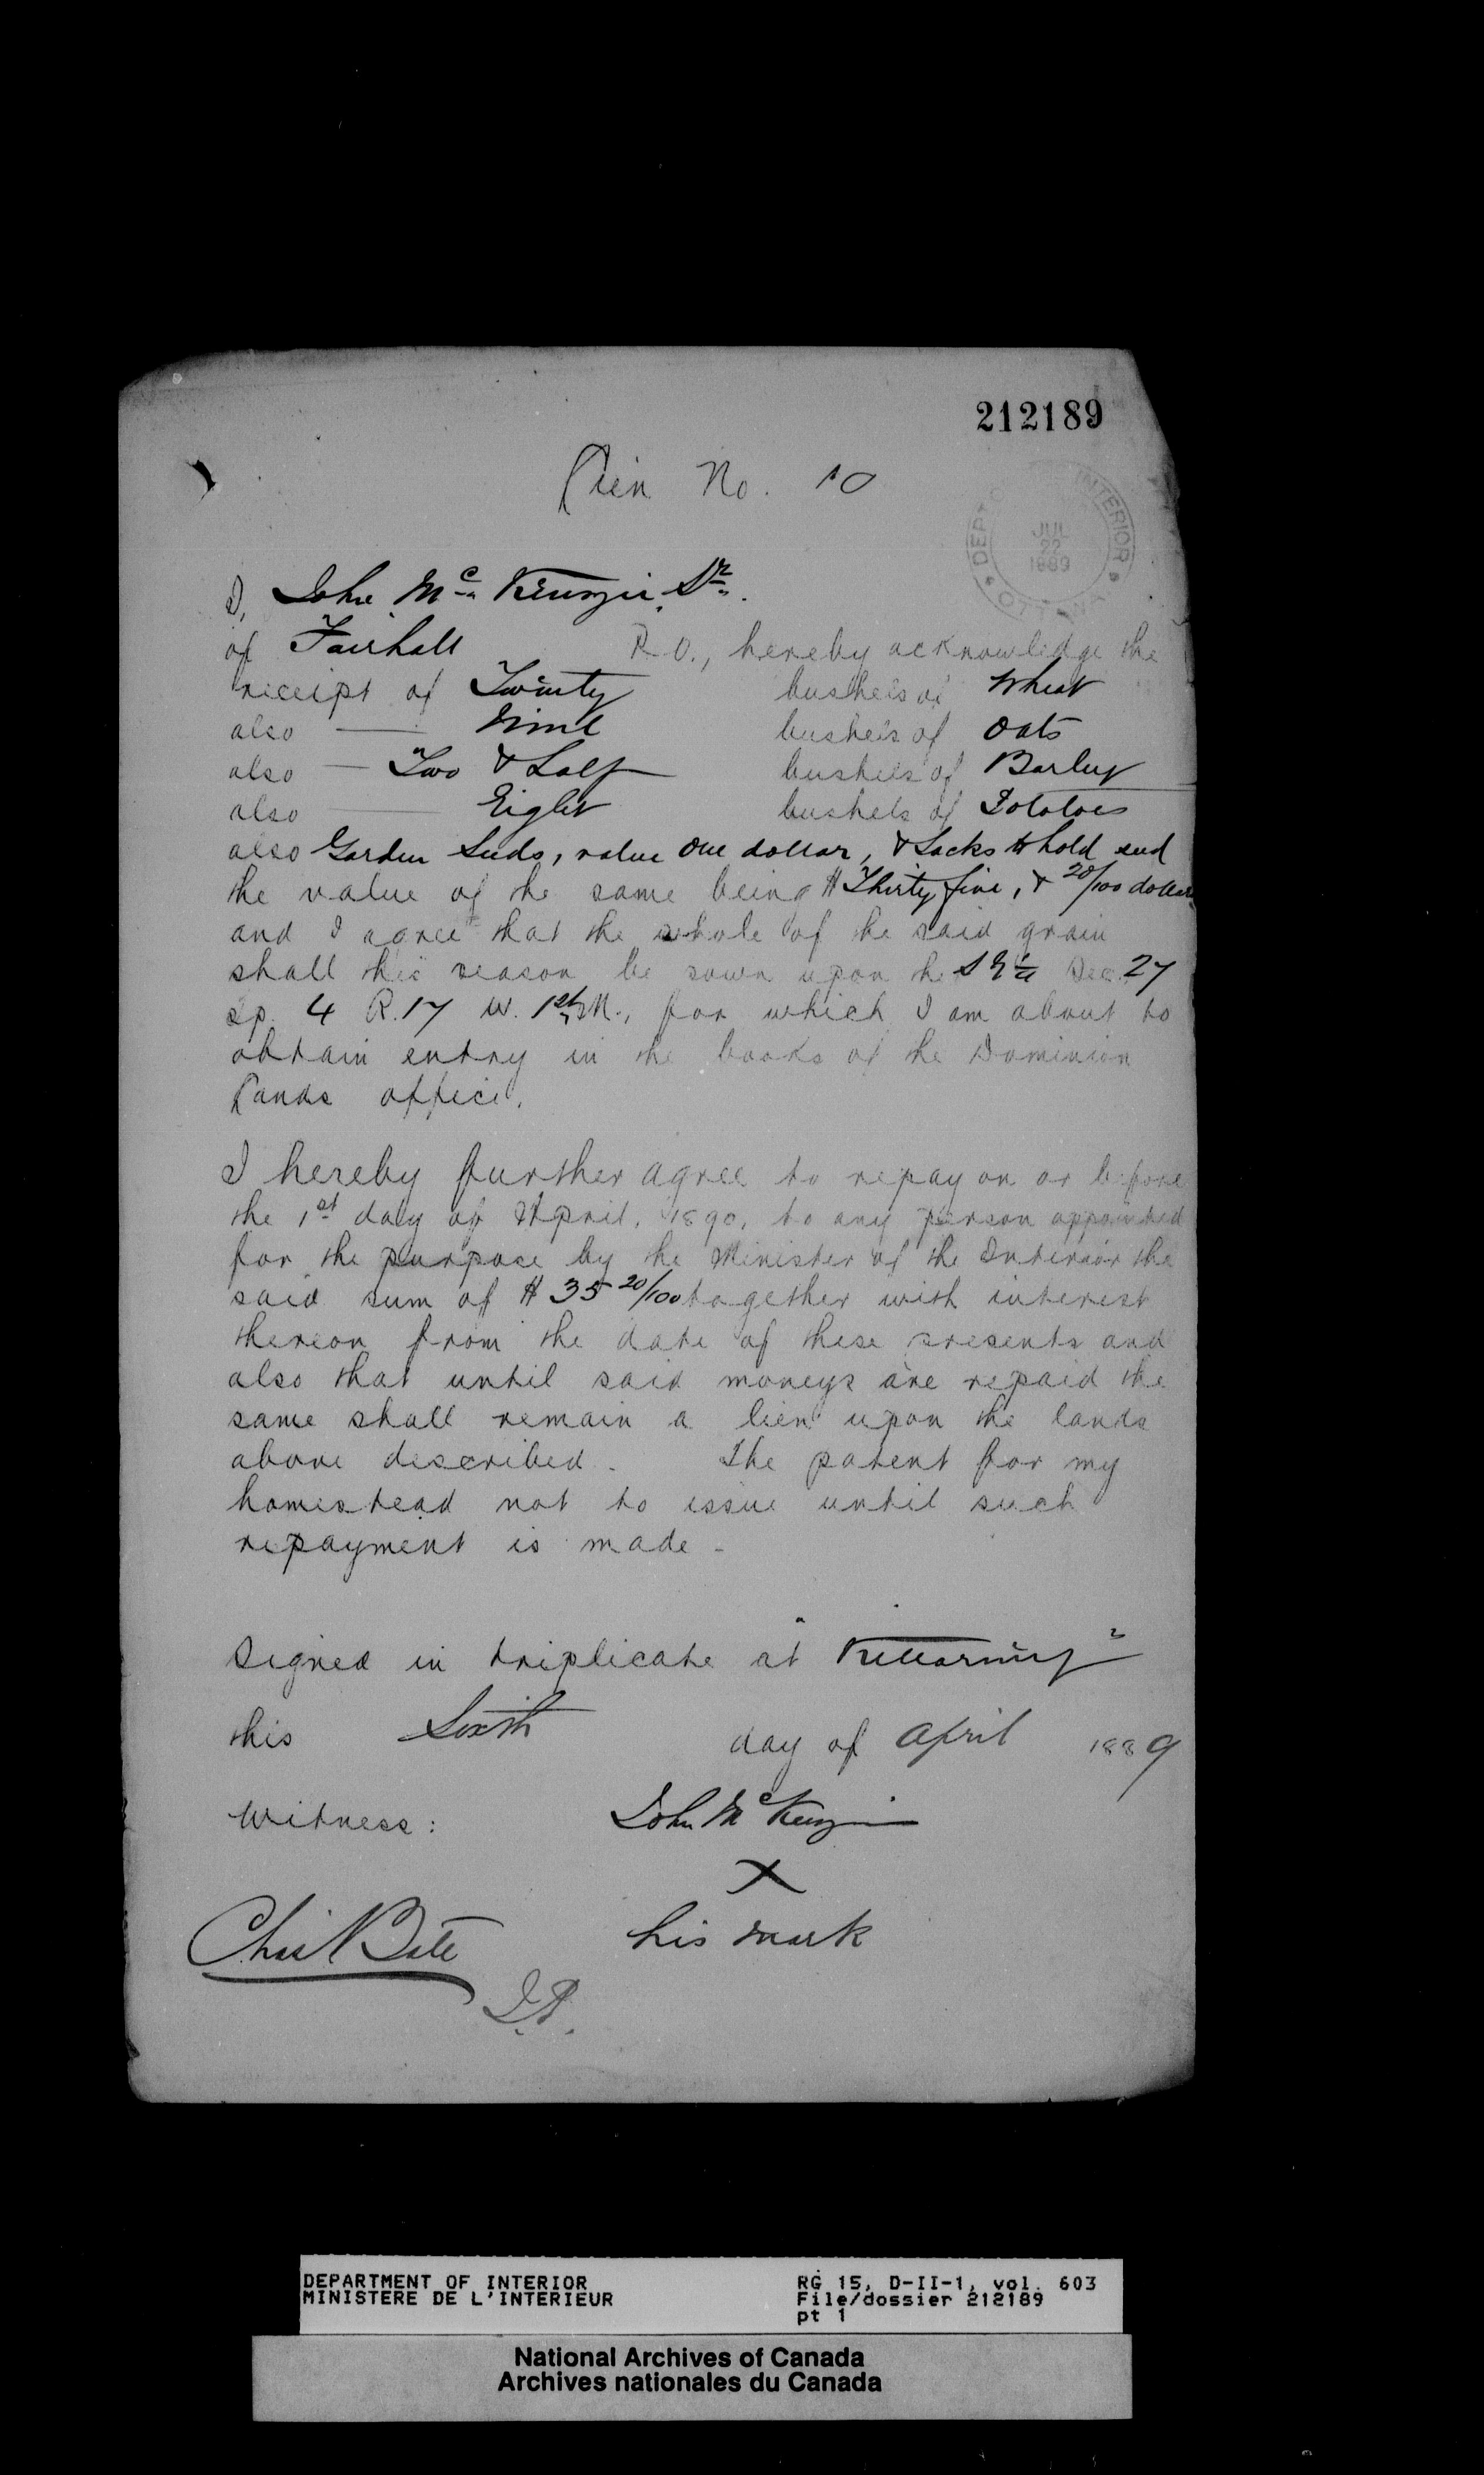 212189
Lien No. 10
DEPT INTERIOR
JUL
22
1889
OTTAWA
I, John McKenzie, Sr.
of Fairhall P.O., hereby acknowledge the
receipt of Twenty bushels of Wheat
also Nine bushels of Oats
also Two & Half bushels of Barley
also Eight bushels of Potatoes
also Garden Seeds, value One dollar, & Sacks to hold seed
the value of the same being $ Thirty five, & 20/100 dollars
and I agree that the whole of the said grain
shall this season be sown upon the S E 1/4 Sec. 27
Tp. 4 R. 17 W. 1st M., for which I am about to
obtain entry in the books of the Dominion
Lands office.
I hereby further agree to repay on or before
the 1st day of April, 1890, to any person appointed
for the purpose by the Minister of the Interior the
said sum of $ 35 20/100 together with interest
thereon from the date of these presents and
also that until said moneys are repaid the
same shall remain a lien upon the lands
above described. The patent for my
homestead not to issue until such
repayment is made -
Signed in triplicate at "Killarney"
this Sixth day of April 1889
Witness: John McKenzie
X
his mark
Chas N Bate
J.P.
DEPARTMENT OF INTERIOR RG 15, D-II-1, vol. 603
MINISTERE DE L'INTERIEUR File/dossier 212189
pt 1
National Archives of Canada
Archives nationales du Canada